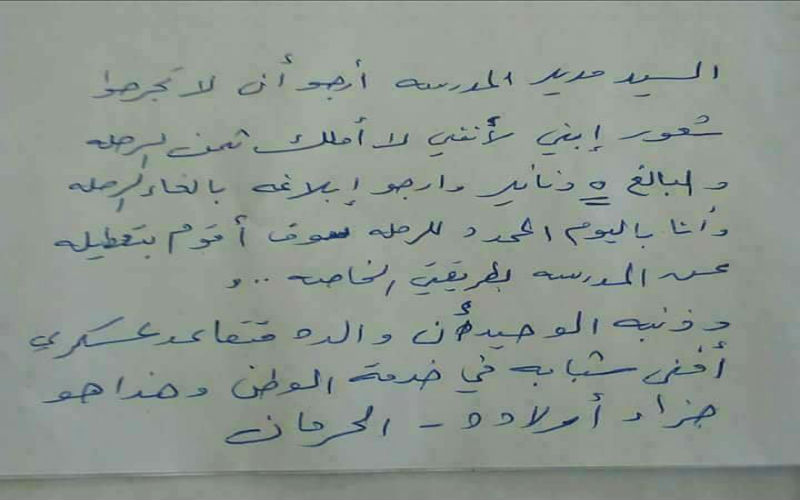 السيد مدير المدرسه أرجو أن لا تجرحوا
شعور إبني لأنني لا أملك ثمن الرحله
والبالغ ٥ دنانير وارجو إبلاغه بالغاء الرحله
وأنا باليوم المحدد للرحله سوف أقوم بتعطيله
عن المدرسه بطريقتي الخاصه ..و
وذنبه الوحيد أن والده متقاعد عسكري
أفنى شبابه في خدمة الوطن وهذا هو
جزاء أولاده - الحرمان